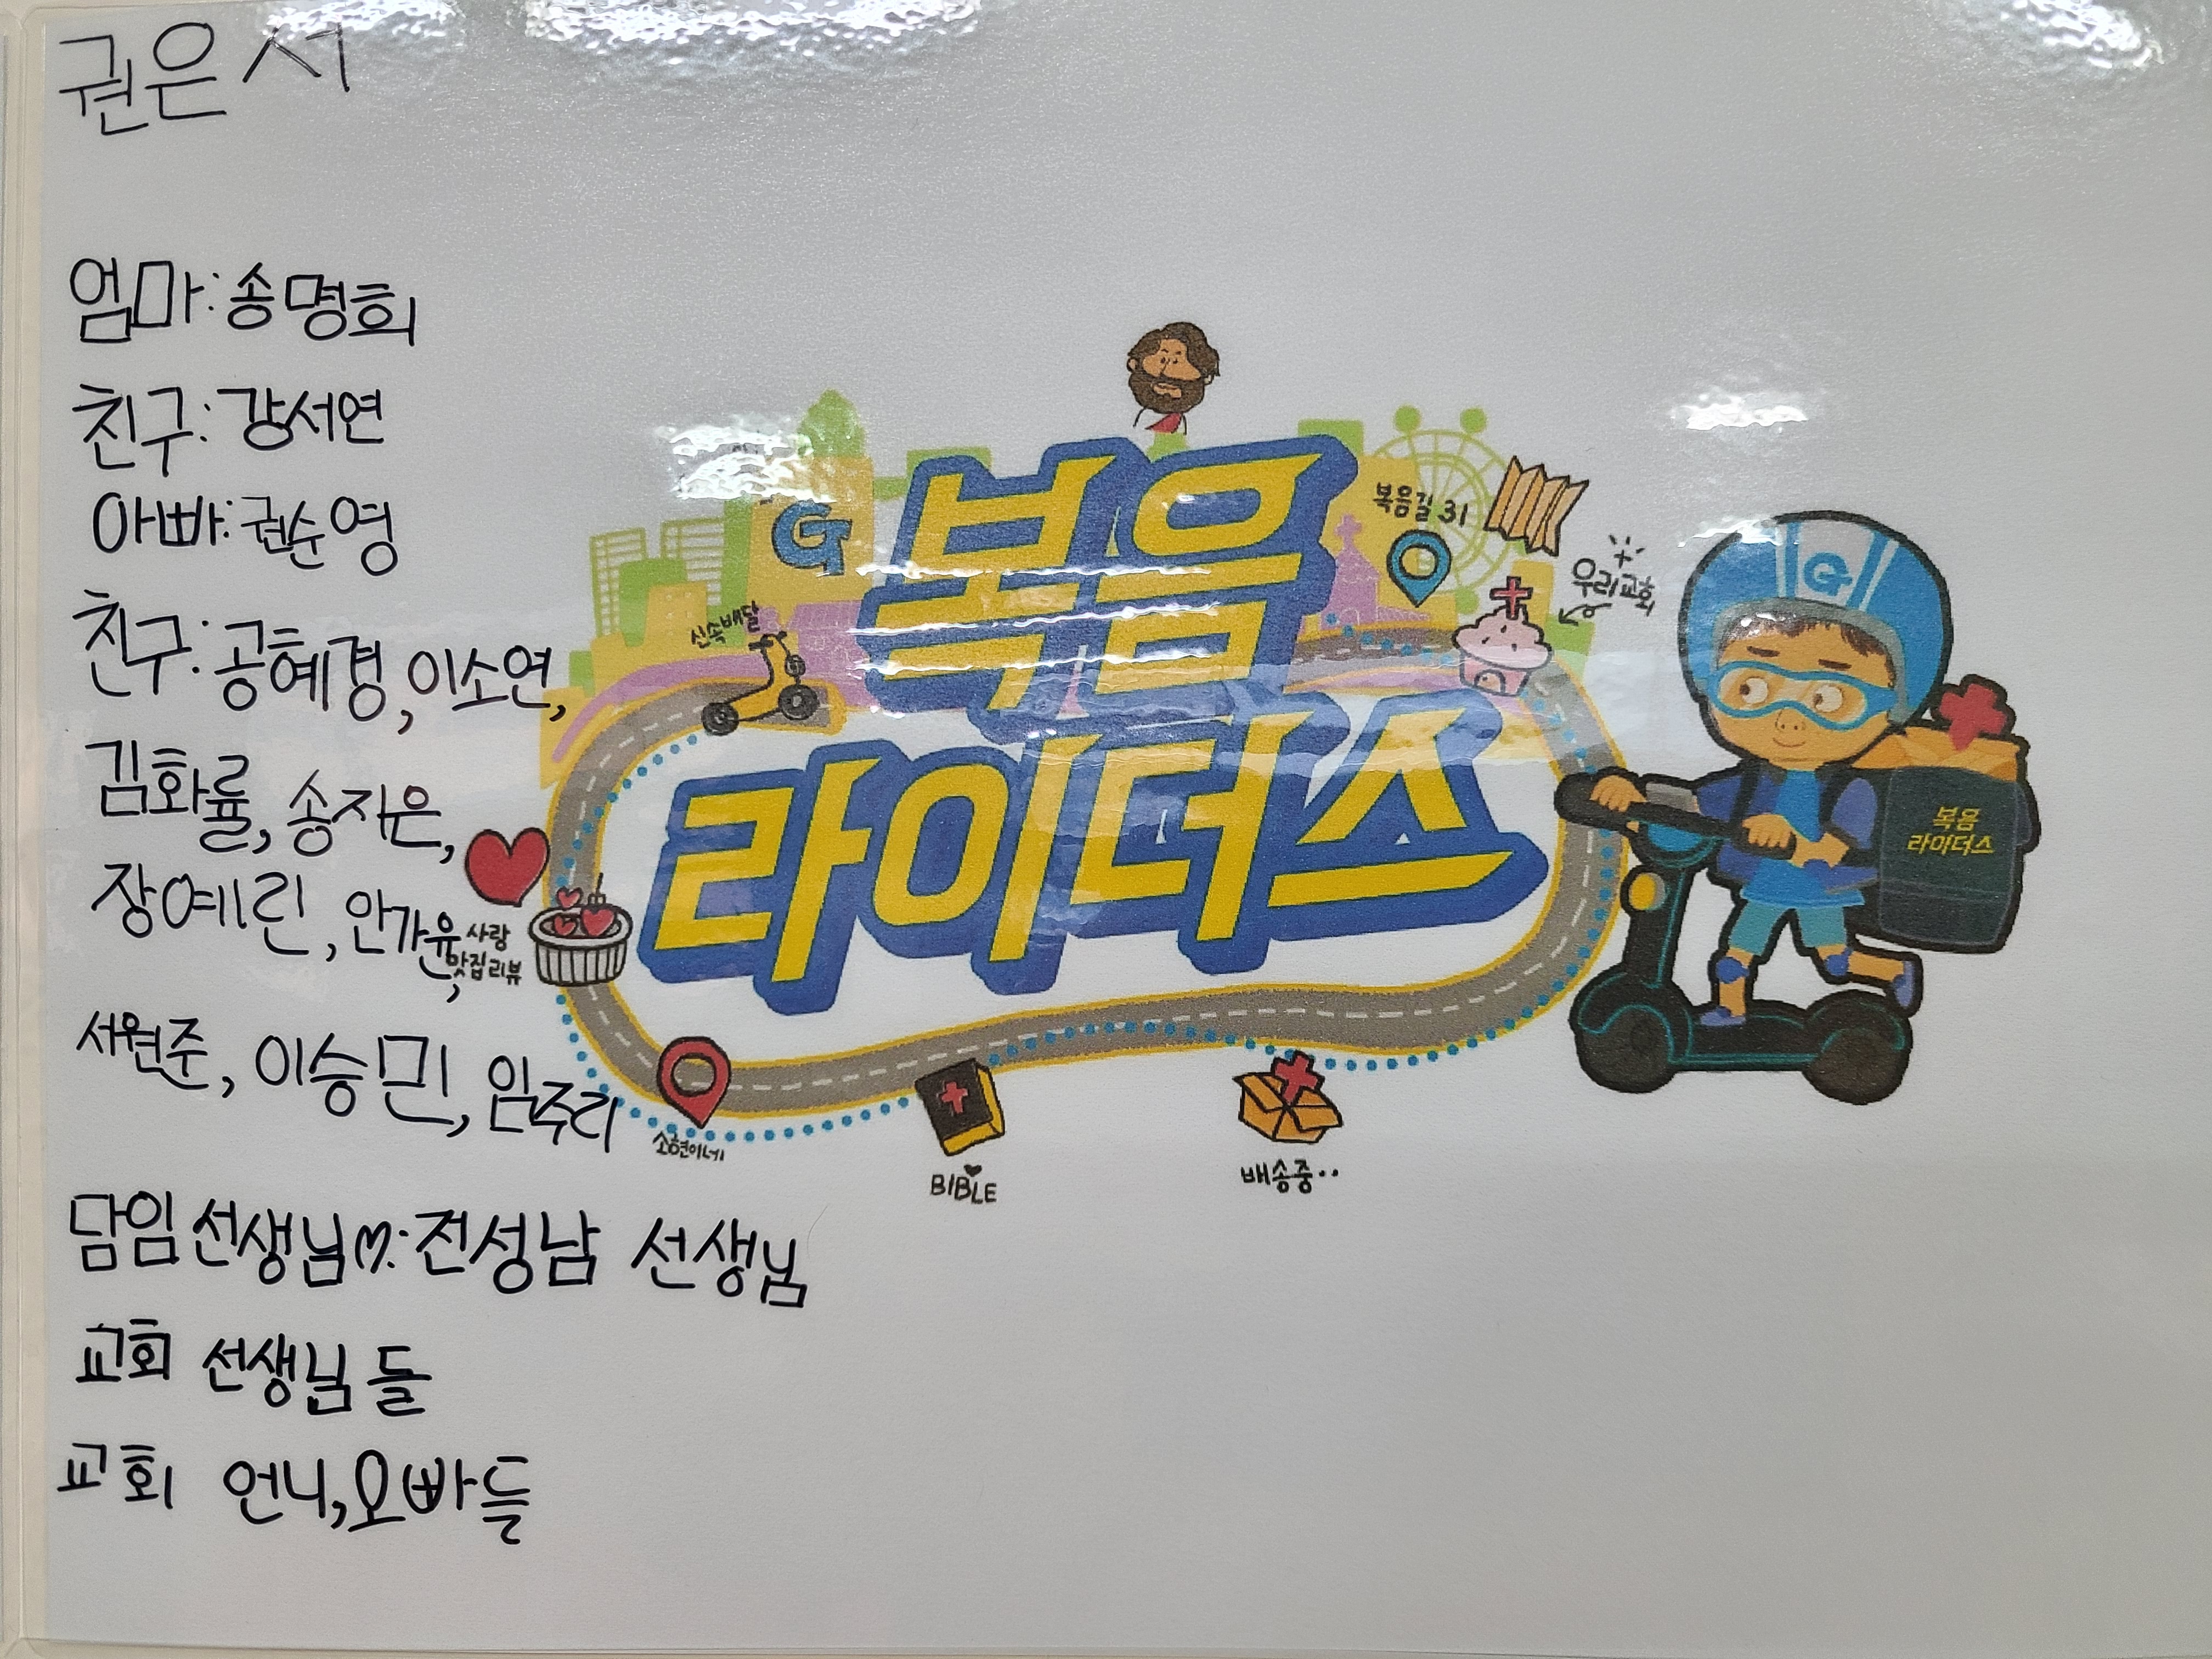 권은서
엄마: 송명희
친구: 강서연
아빠: 권순영
친구: 공혜경, 이소연,
김화률, 송지은,
장예린, 안가윤,
서원주, 이승민, 임주리
담임 선생님♡: 전성남 선생님
교회 선생님들
교회 언니, 오빠들
복음
라이더스
G
신속배달
복음길 31
우리교회
사랑
맛집리뷰
소현이네
BIBLE
배송중..
G
복음
라이더스